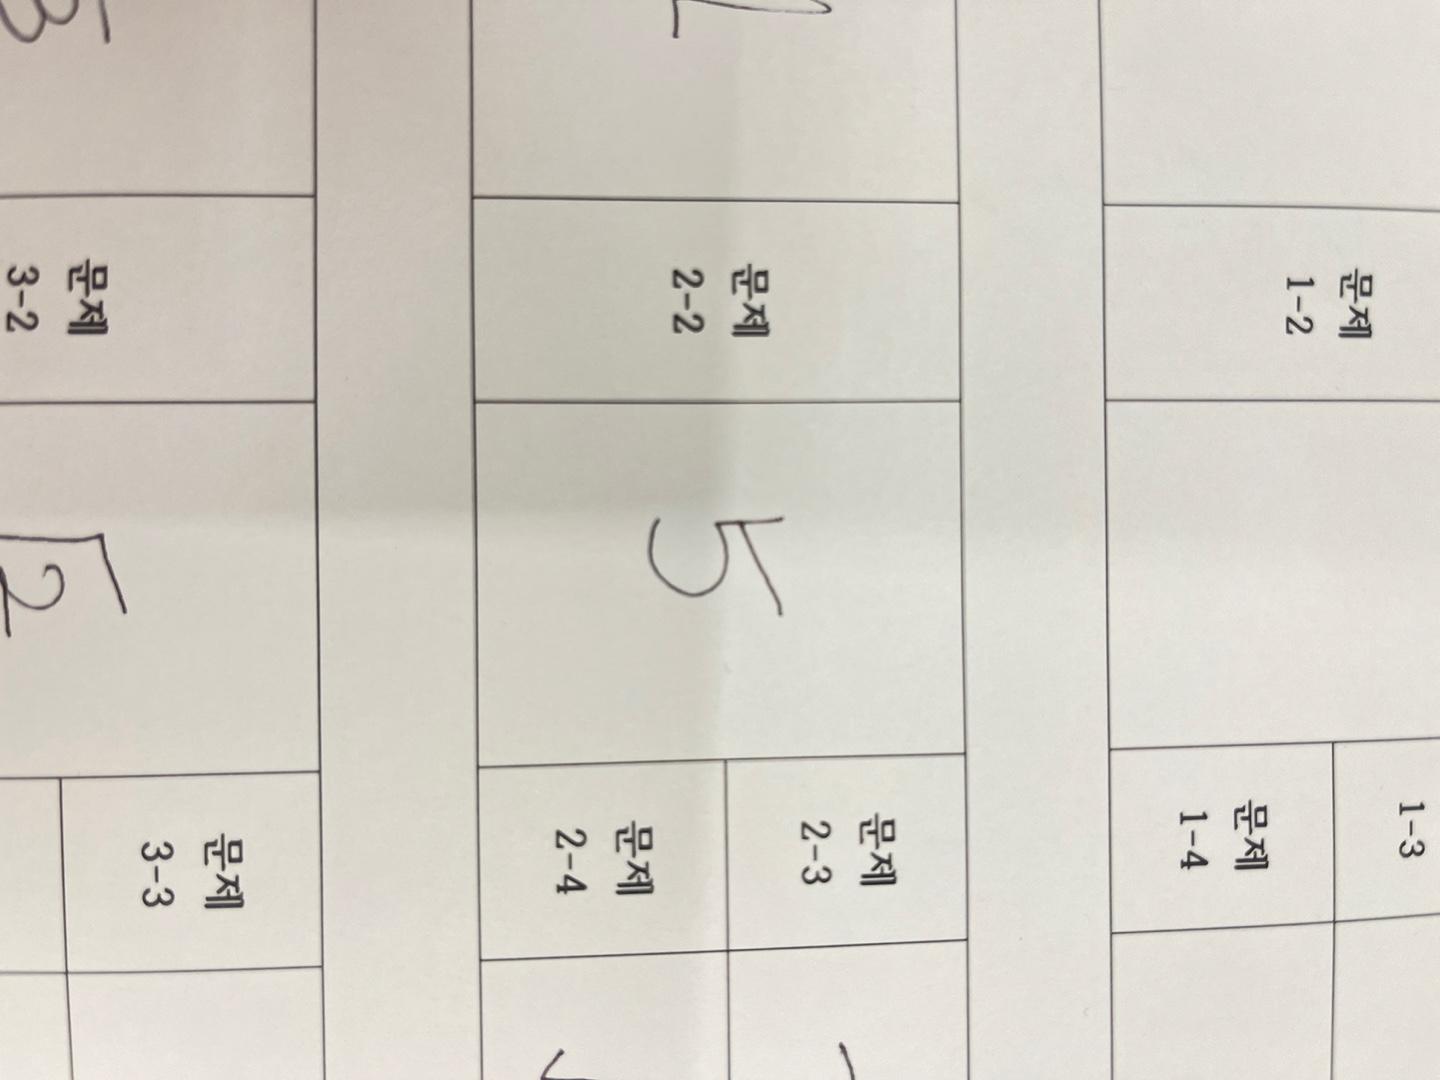 문제
1-2
1-3
문제
1-4
문제
2-2
5
문제
2-3
문제
2-4
문제
3-2
√2
문제
3-3